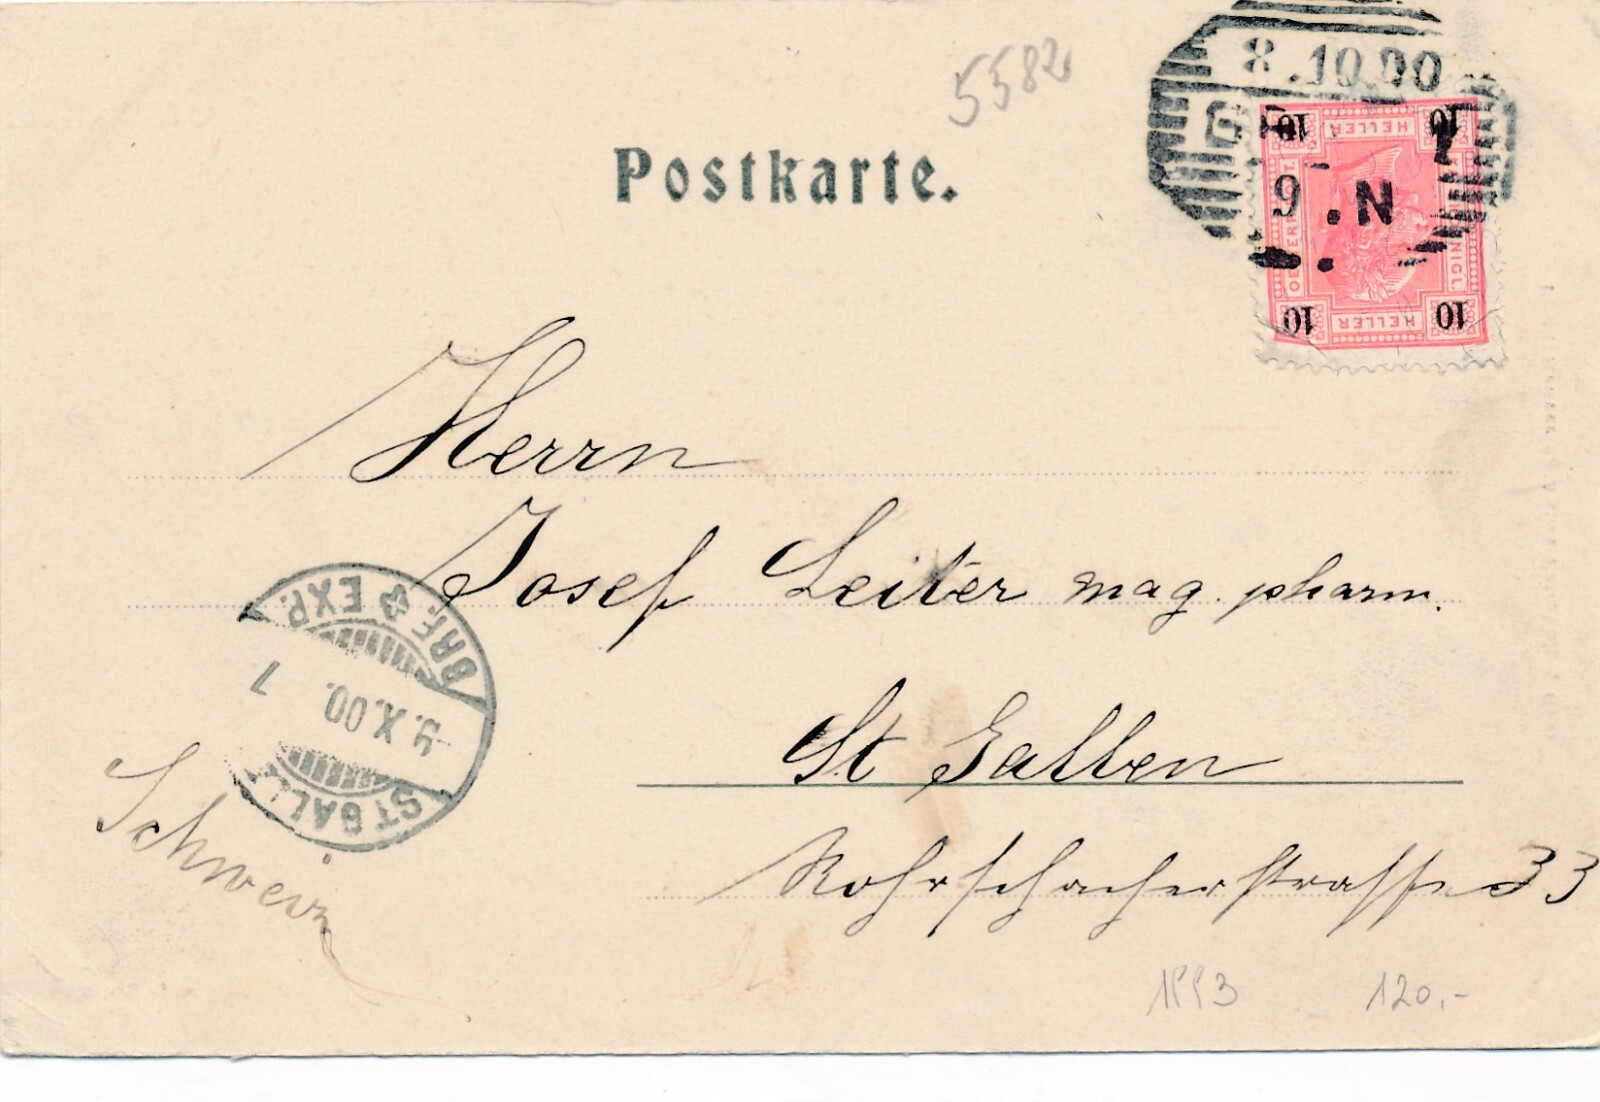 5582
8.10.00
9.N
Postkarte.
10 HELLER 10
10 HELLER 10
Herrn
Josef Leiter mag. pharm.
St Gallen
Rohrschacherstrasse 33
Schweiz
BRF. EXP.
9.X.00. 7
ST GALL
120.-